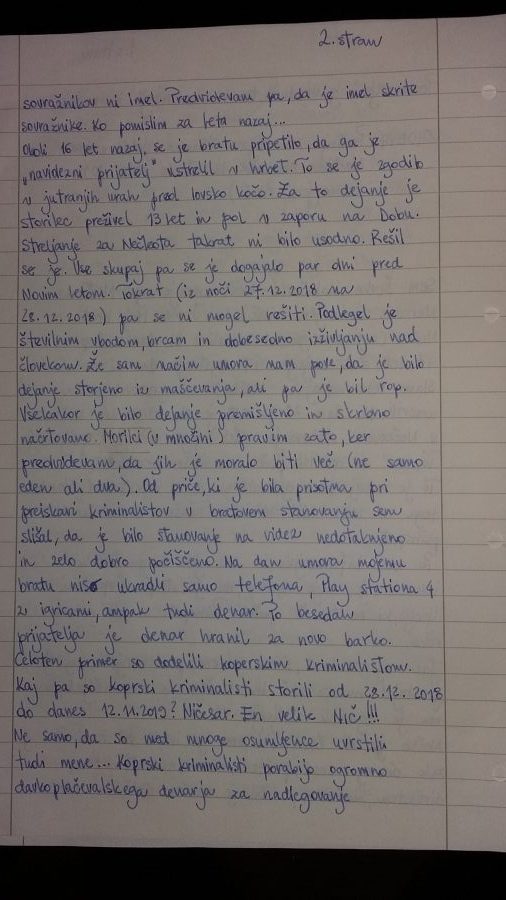 2. stran
sovražnikov ni imel. Predvidevam pa, da je imel skrite
sovražnike. Ko pomislim za leta nazaj...
Okoli 16 let nazaj, se je bratu pripetilo, da ga je
"navidezni prijatelj" ustrelil v hrbet. To se je zgodilo
v jutranjih urah pred lovsko kočo. Za to dejanje je
storilec preživel 13 let in pol v zaporu na Dobu.
Streljanje za Nedžata takrat ni bilo usodno. Rešil
se je. Vse skupaj pa se je dogajalo par dni pred
Novim letom. Tokrat (iz noči 27.12.2018 na
28.12.2018) pa se ni mogel rešiti. Podlegel je
številnim vbodom, brcam in dobesedno izživljanju nad
človekom. Že sam način umora nam pove, da je bilo
dejanje storjeno iz maščevanja, ali pa je bil rop.
Vsekakor je bilo dejanje premišljeno in skrbno
načrtovano. Morilci (v množini) pravim zato, ker
predvidevam, da jih je moralo biti več (ne samo
eden, ali dva). Od priče, ki je bila prisotna pri
preiskavi kriminalistov v bratovem stanovanju sem
slišal, da je bilo stanovanje na videz nedotaknjeno
in zelo dobro počiščeno. Na dan umora mojemu
bratu niso ukradli samo telefona, Play stationa 4
z igricami, ampak tudi denar. Po besedah
prijatelja je denar hranil za novo barko.
Celoten primer so dodelili koperskim kriminalistom.
Kaj pa so koprski kriminalisti storili od 28.12.2018
do danes 12.11.2019? Ničesar. En velik Nič!!!
Ne samo, da so med mnoge osumljence uvrstili
tudi mene... Koprski kriminalisti porabijo ogromno
davkoplačevalskega denarja za nadlegovanje